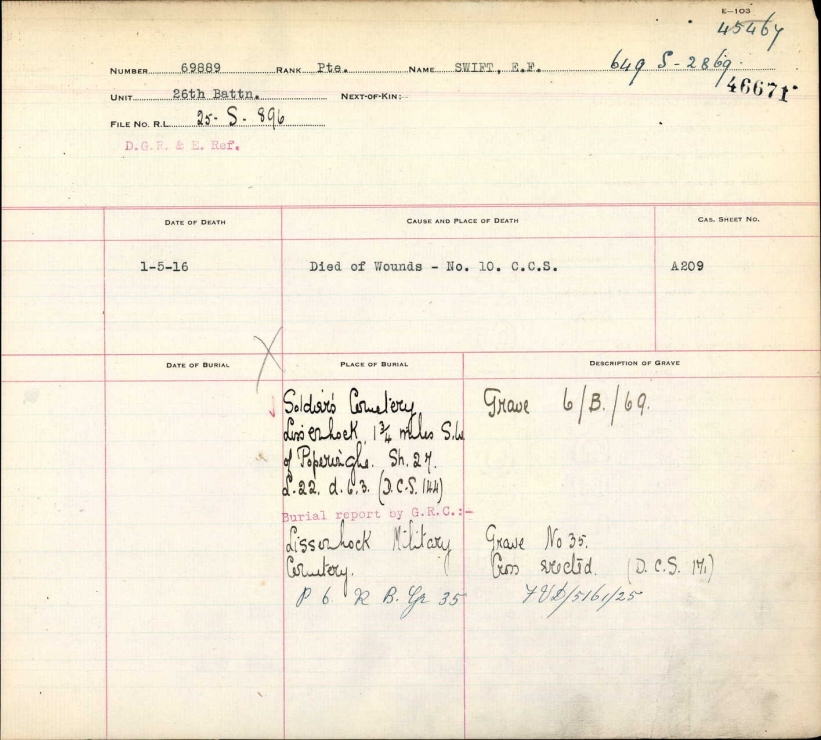 E—103
45467
NUMBER 69889 RANK Pte. NAME SWIFT, E.F. 649 S-2869.
46671
UNIT 26th Battn. NEXT-OF-KIN:-
FILE NO. R.L. 25-S-896
D.G.R. & E. Ref.
DATE OF DEATH CAUSE AND PLACE OF DEATH CAS. SHEET NO.
1-5-16 Died of Wounds - No. 10. C.C.S. A209
DATE OF BURIAL PLACE OF BURIAL DESCRIPTION OF GRAVE
Soldier's Cemetery Grave 6/B./69.
Lissenhock, 1¾ miles S.W.
of Poperinghe. Sh. 27.
L.22. d.6.3. (D.C.S. 144)
Burial report by G.R.C.:-
Lissenhock Military Grave No 35.
Cemetery. Cross erected. (D.C.S. 171)
P 6. R B. Gr 35